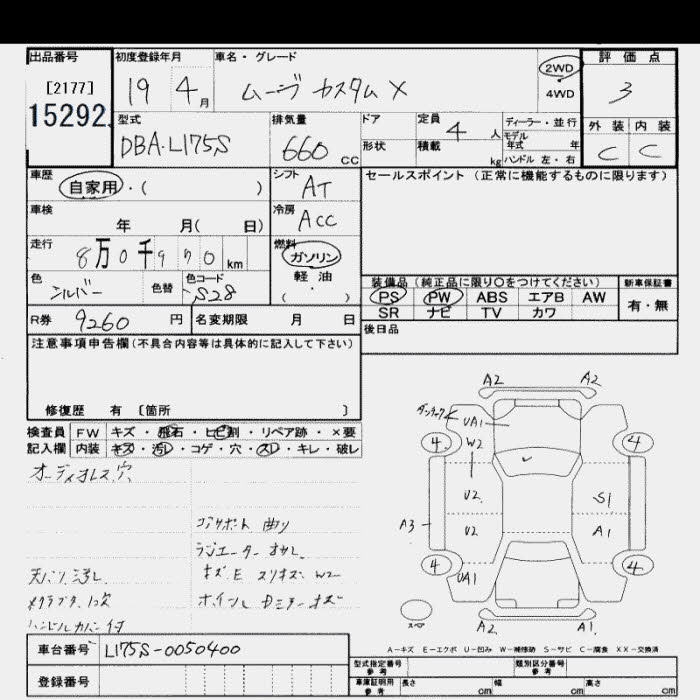 出品番号 初度登録年月 車名・グレード 評価点
[2177] 19 4月 ムーヴ カスタム X 2WD 4WD 3
15292
型式 排気量 ドア 定員 4人 ディーラー・並行 外装 内装
DBA-L175S 660cc 形状 積載 kg モデル年式 年 C C
ハンドル 左・右
車歴 自家用・( ) シフト AT セールスポイント(正常に機能するものに限ります)
車検 年 月( 日) 冷房 ACC
走行 8万0千970km 燃料 ガソリン 軽・油 ( )
色 シルバー 色替 色コード S28
装備品(純正品に限り○をつけてください) 新車保証書
PS PW ABS エアB AW 有・無
SR ナビ TV カワ
R券 9260円 名変期限 月 日 後日品
注意事項申告欄(不具合内容等は具体的に記入して下さい)
修復歴 有 〔箇所 〕
検査員 FW キズ・飛石・ヒビ割・リペア跡・×要
記入欄 内装 キズ・汚レ・コゲ・穴・スレ・キレ・破レ
オーディオレス穴
コアサポート 曲り
天バリ 汚レ
キズ・E スリキズ W2
ハンドルカバー付
A2 A2
UA1
W2
4 4
U2 S1
A3 U2 A1
4 UA1 4
スペア A2 A1
車台番号 L175S-0050400
A-キズ E-エクボ U-凹み W-補修跡 S-サビ C-腐食 XX-交換済
登録番号
型式指定番号 参考 類別区分番号 参考
車庫証明用 参考 長さ cm 幅 cm 高さ cm